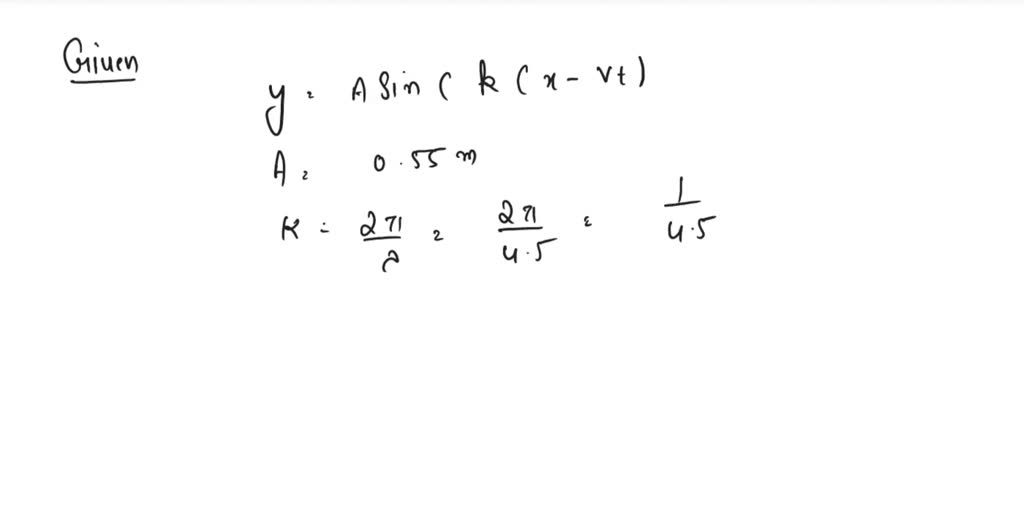 Given
y = A Sin ( k ( x - vt )
A = 0.55 m
K = 2π/λ = 2π/4.5 = 1/4.5